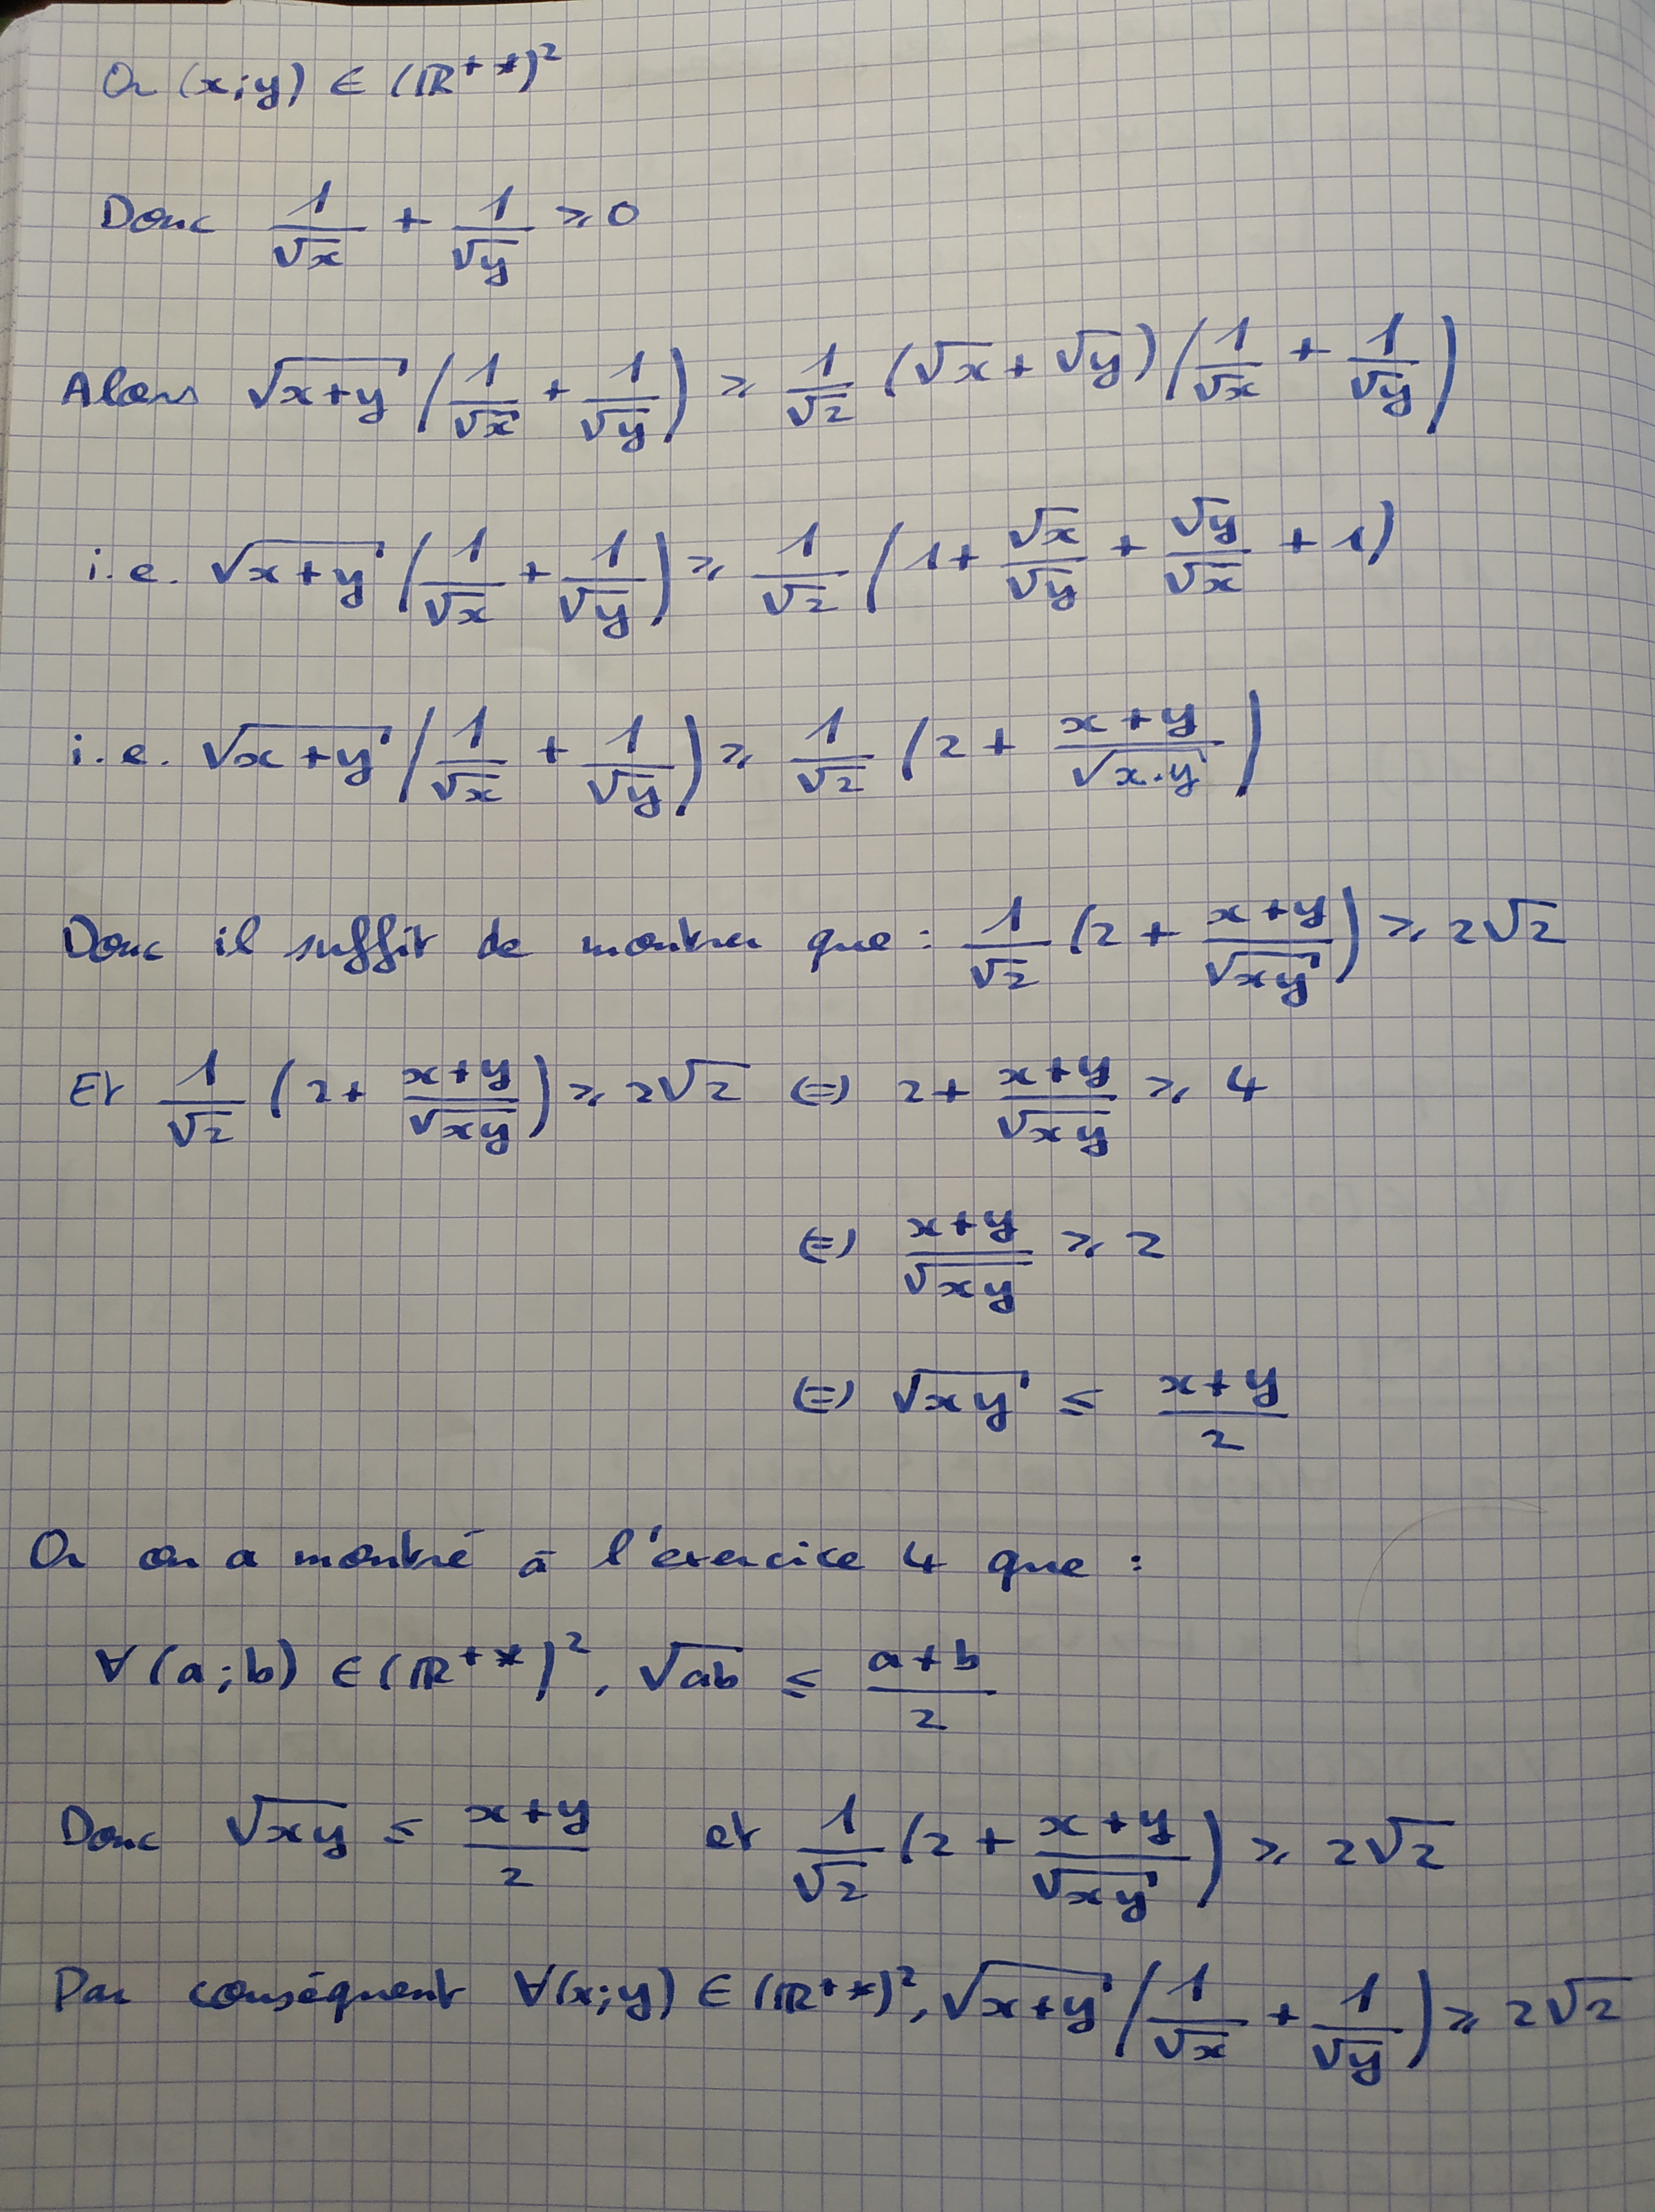 Or (x;y) ∈ (ℝ⁺*)²
Donc 1/√x + 1/√y ⩾ 0
Alors √(x+y) (1/√x + 1/√y) ⩾ 1/√2 (√x + √y)(1/√x + 1/√y)
i.e. √(x+y) (1/√x + 1/√y) ⩾ 1/√2 (1 + √x/√y + √y/√x + 1)
i.e. √(x+y) (1/√x + 1/√y) ⩾ 1/√2 (2 + (x+y)/√(x.y))
Donc il suffit de montrer que : 1/√2 (2 + (x+y)/√(xy)) ⩾ 2√2
Et 1/√2 (2 + (x+y)/√(xy)) ⩾ 2√2 (=) 2 + (x+y)/√(xy) ⩾ 4
(=) (x+y)/√(xy) ⩾ 2
(=) √(xy) ⩽ (x+y)/2
Or on a montré à l'exercice 4 que :
∀(a;b) ∈ (ℝ⁺*)², √(ab) ⩽ (a+b)/2
Donc √(xy) ⩽ (x+y)/2 et 1/√2 (2 + (x+y)/√(xy)) ⩾ 2√2
Par conséquent ∀(x;y) ∈ (ℝ⁺*)², √(x+y) (1/√x + 1/√y) ⩾ 2√2